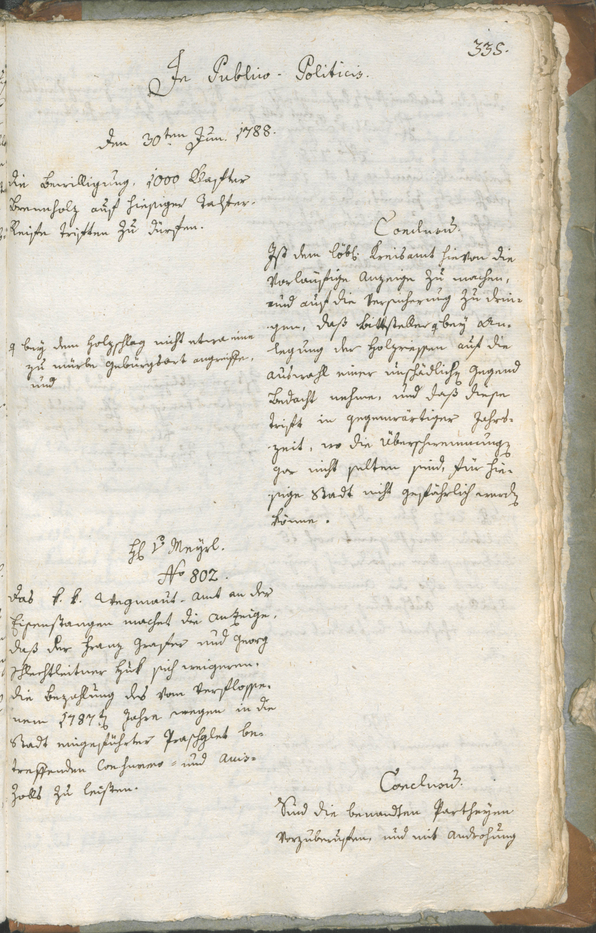 335.
In Publico-Politicis.
den 30ten Jun. 1788.
die Bewilligung, 1000 Klafter
Brennholz auf hiesiger
triften zu dürfen.
Conclusum.
Ist dem löbl. Kreisamt hievon die
vorläufige Anzeige zu machen,
und auf die Versicherung zu drin-
gen, daß Bittsteller bey An-
legung der Holzriesen auf die
auswahl einer unschädlichen Gegend
bedacht nehme, und daß diese
trift in gegenwärtiger Jahrs-
zeit, wo die Überschwemmungen
gar nicht selten sind, für hie-
sige Stadt nicht gefährlich werden
könne.
bey dem Holzschlag nicht etwa eine
zu mürbe Geburgsort angreiffe,
und
H. v. Meyrl.
No 802.
Das k. k. Wegmaut-Amt an der
Eisenstangen machet die Anzeige,
daß der Franz Graster und Georg
Schlechtleitner sich weigeren,
die Bezahlung des vom verflosse-
nem 1787ten Jahre wegen in die
Stadt eingeführter Praschglet be-
treffenden Consumo- und Accis-
Zolls zu leisten.
Conclusum.
Sind die benandten Partheyen
vorzuberuffen, und mit Androhung